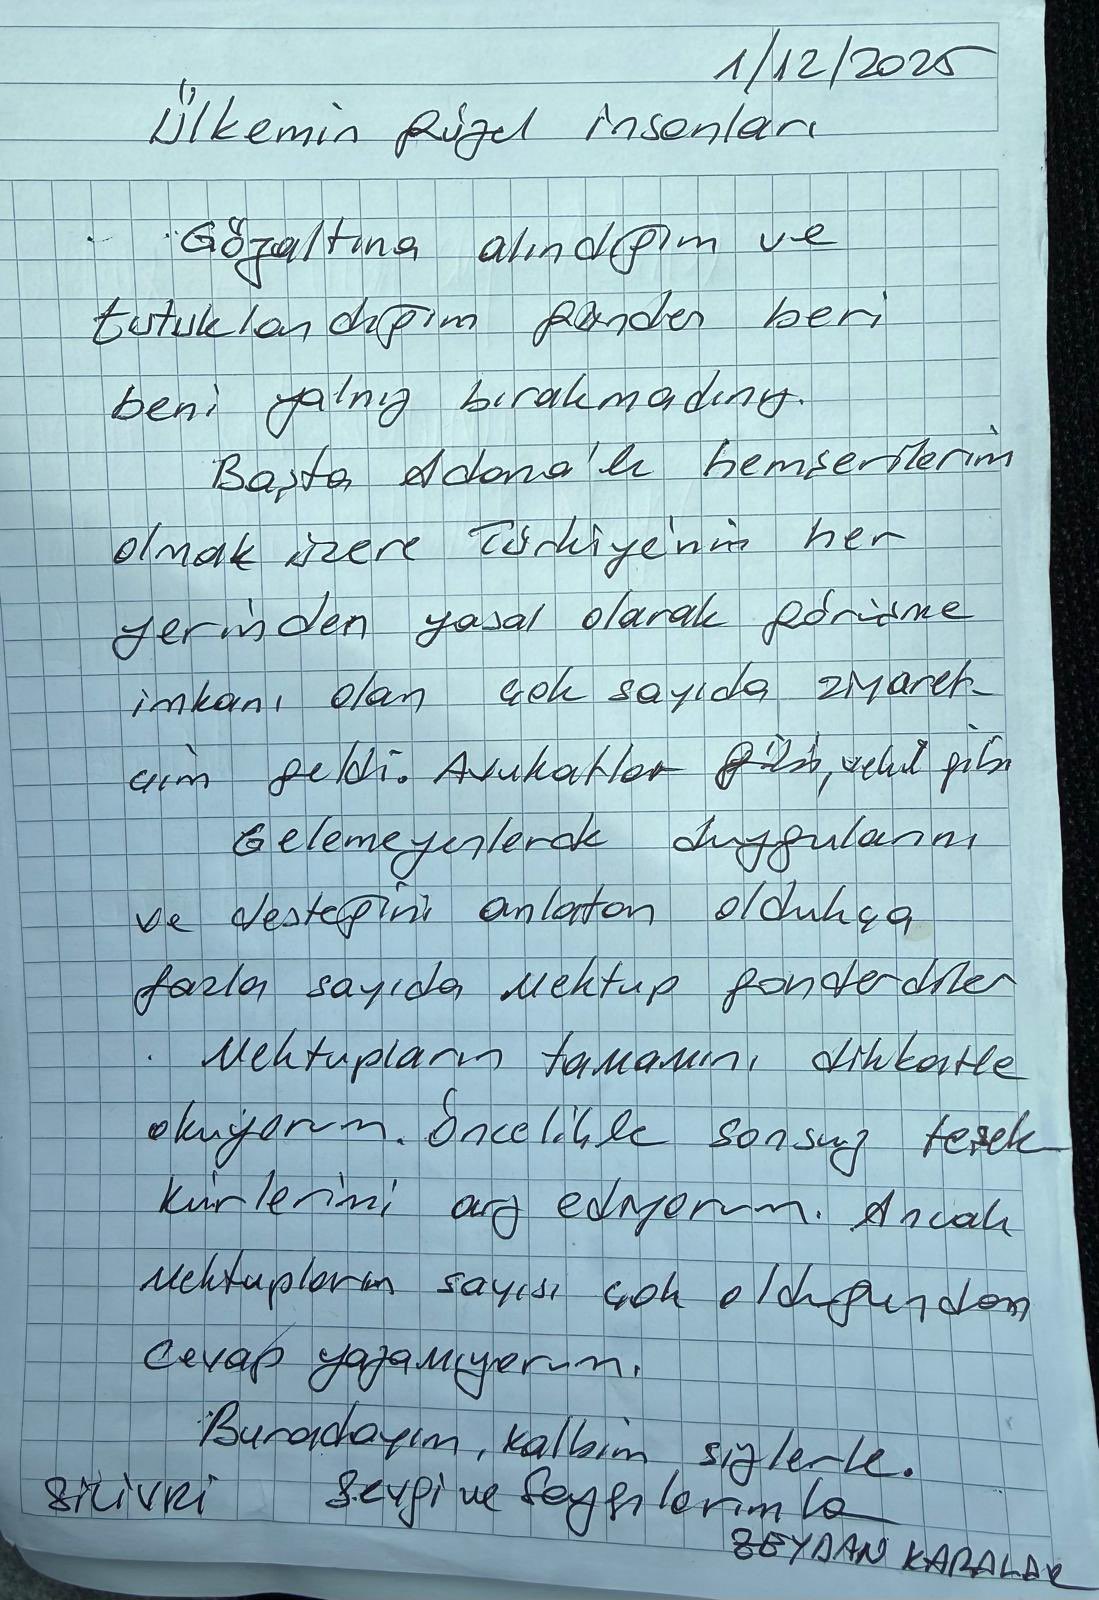 1/12/2025
Ülkemin güzel insanları
Gözaltına alındığım ve
tutuklandığım günden beri
beni yalnız bırakmadınız.
Başta Adana'lı hemşerilerim
olmak üzere Türkiye'nin her
yerinden yasal olarak görüşme
imkanı olan çok sayıda ziyaret-
çim geldi. Avukatlar gibi, vekil gibi
Gelemeyenlerde duygularını
ve desteğini anlatan oldukça
fazla sayıda mektup gönderdiler
Mektupların tamamını dikkatle
okuyorum. Öncelikle sonsuz teşek
kürlerimi arz ediyorum. Ancak
Mektupların sayısı çok olduğundan
cevap yazamıyorum.
Buradayım, kalbim sizlerle.
SİLİVRİ Sevgi ve Saygılarımla
ZEYDAN KARALAR